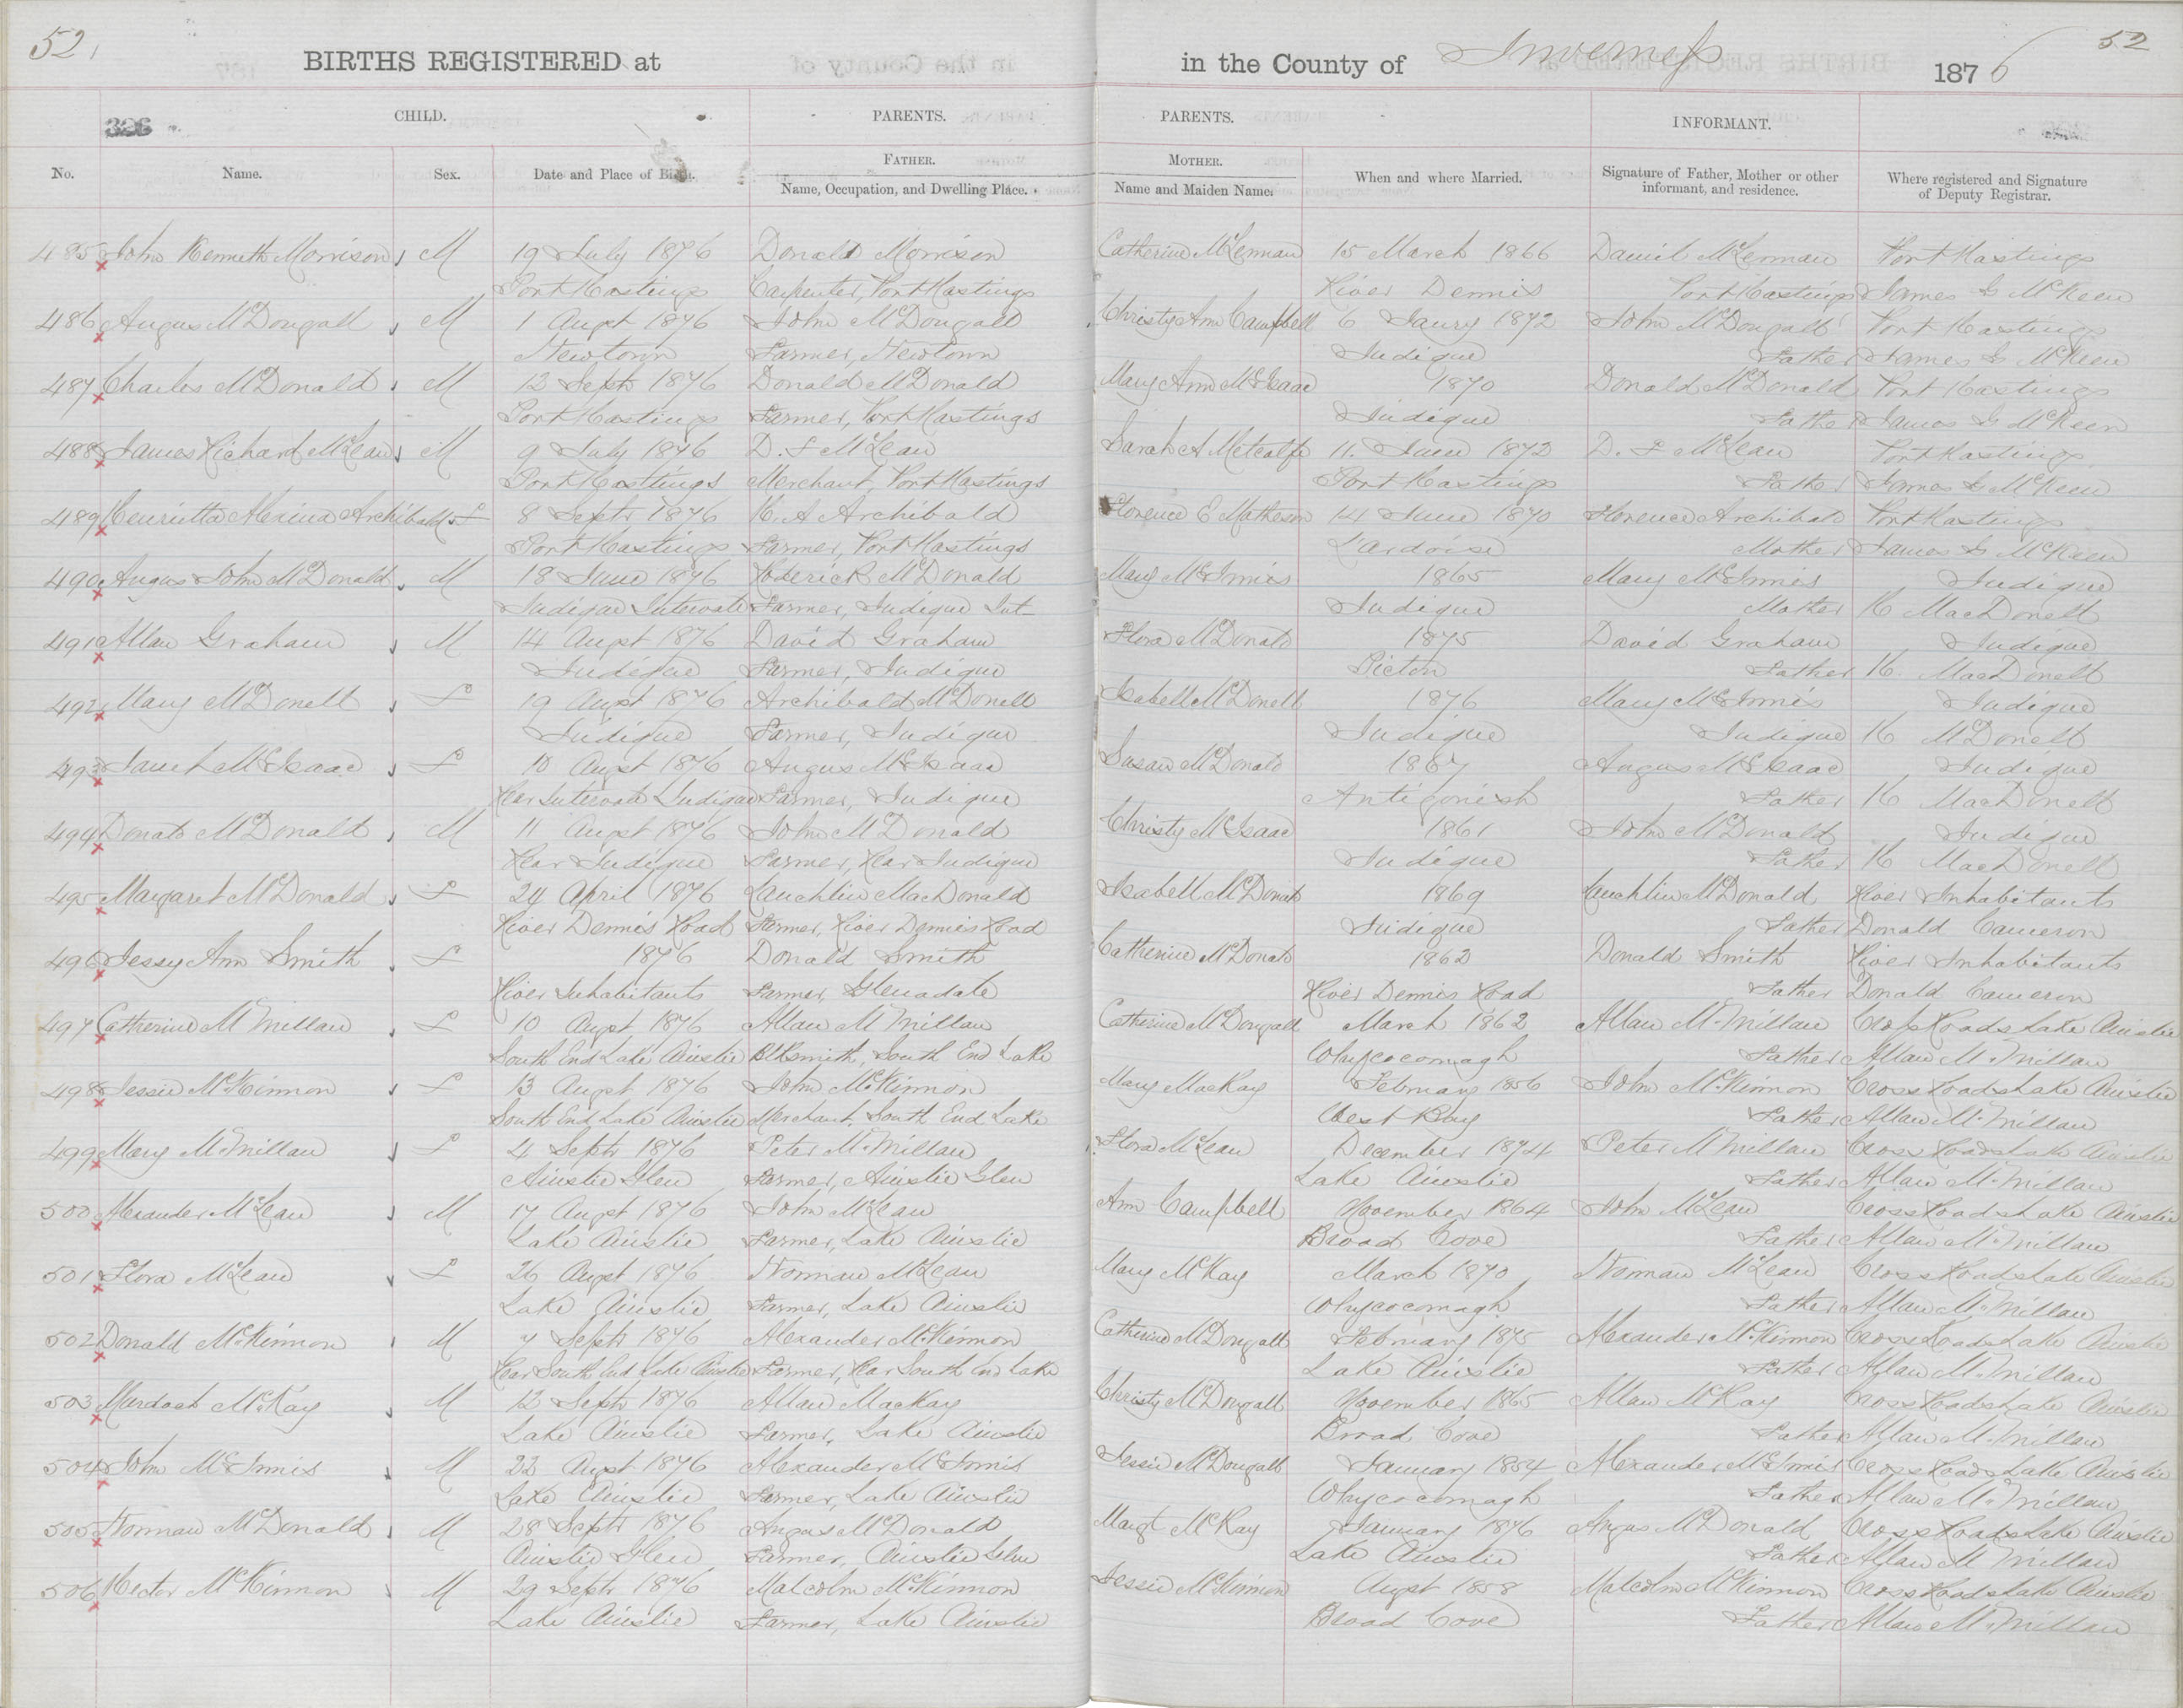 52
BIRTHS REGISTERED at in the County of Inverness 1876 52
326 CHILD. PARENTS. PARENTS. INFORMANT.
FATHER. MOTHER.
No. Name. Sex. Date and Place of Birth. Name, Occupation, and Dwelling Place. Name and Maiden Name. When and where Married. Signature of Father, Mother or other informant, and residence. Where registered and Signature of Deputy Registrar.
485 John Kenneth Morrison M 19 July 1876 Donald Morrison Catherine McLennan 15 March 1866 Daniel McLennan Port Hastings
Port Hastings Carpenter, Port Hastings River Dennis Port Hastings James G McKeen
486 Angus McDougall M 1 Augst 1876 John McDougall Christy Ann Campbell 6 Jany 1872 John McDougall Port Hastings
Newtown Farmer, Newtown Judique Father James G McKeen
487 Charles McDonald M 12 Septr 1876 Donald McDonald Mary Ann McIsaac 1870 Donald McDonald Port Hastings
Port Hastings Farmer, Port Hastings Judique Father James G McKeen
488 James Richard McLean M 9 July 1876 D. F McLean Sarah A Metcalfe 11. June 1872 D. F McLean Port Hastings
Port Hastings Merchant, Port Hastings Port Hastings Father James G McKeen
489 Henrietta Mexina Archibald F 8 Septr 1876 H. A Archibald Florence E Matheson 14 June 1870 Florence Archibald Port Hastings
Port Hastings Farmer, Port Hastings L'Ardoise Mother James G McKeen
490 Angus John McDonald M 18 June 1876 Roderick McDonald Mary McInnis 1865 Mary McInnis Judique
Judique Intervale Farmer, Judique Int- Judique Mother H MacDonell
491 Allan Graham M 14 Augst 1876 David Graham Flora McDonald 1875 David Graham Judique
Judique Farmer, Judique Pictou Father H. MacDonell
492 Mary McDonell F 19 Augst 1876 Archibald McDonell Isabell McDonell 1876 Mary McInnis Judique
Judique Farmer, Judique Judique Judique H McDonell
493 Janet McIsaac F 10 Augst 1876 Angus McIsaac Susan McDonald 1867 Angus McIsaac Judique
Rear Intervale Judique Farmer, Judique Antigonish Father H MacDonell
494 Donald McDonald M 11 Augst 1876 John McDonald Christy McIsaac 1861 John McDonald Judique
Rear Judique Farmer, Rear Judique Judique Father H MacDonell
495 Margaret McDonald F 24 April 1876 Lauchlin MacDonald Isabell McDonald 1869 Lauchlin McDonald River Inhabitants
River Dennis Road Farmer, River Dennis Road Judique Father Donald Cameron
496 Jessy Ann Smith F 1876 Donald Smith Catherine McDonald 1862 Donald Smith River Inhabitants
River Inhabitants Farmer, Glenadale River Dennis Road Father Donald Cameron
497 Catherine McMillan F 10 Augst 1876 Allan McMillan Catherine McDougall March 1862 Allan McMillan Cross Roads Lake Ainslie
South End Lake Ainslie Blksmith, South End Lake Whycocomagh Father Allan McMillan
498 Jessie McKinnon F 13 Augst 1876 John McKinnon Mary MacKay February 1856 John McKinnon Cross Roads Lake Ainslie
South End Lake Ainslie Merchant, South End Lake West Bay Father Allan McMillan
499 Mary McMillan F 4 Septr 1876 Peter McMillan Flora McLean December 1874 Peter McMillan Cross Roads Lake Ainslie
Ainslie Glen Farmer, Ainslie Glen Lake Ainslie Father Allan McMillan
500 Alexander McLean M 17 Augst 1876 John McLean Ann Campbell November 1864 John McLean Cross Roads Lake Ainslie
Lake Ainslie Farmer, Lake Ainslie Broad Cove Father Allan McMillan
501 Flora McLean F 26 Augst 1876 Norman McLean Mary McKay March 1870 Norman McLean Cross Roads Lake Ainslie
Lake Ainslie Farmer, Lake Ainslie Whycocomagh Father Allan McMillan
502 Donald McKinnon M 7 Septr 1876 Alexander McKinnon Catherine McDougall February 1875 Alexander McKinnon Cross Roads Lake Ainslie
Rear South End Lake Ainslie Farmer, Rear South End Lake Lake Ainslie Father Allan McMillan
503 Murdoch McKay M 12 Septr 1876 Allan MacKay Christy McDougall November 1865 Allan McKay Cross Roads Lake Ainslie
Lake Ainslie Farmer, Lake Ainslie Broad Cove Father Allan McMillan
504 John McInnis M 22 Augst 1876 Alexander McInnis Jessie McDougall January 1854 Alexander McInnis Cross Roads Lake Ainslie
Lake Ainslie Farmer, Lake Ainslie Whycocomagh Father Allan McMillan
505 Norman McDonald M 28 Septr 1876 Angus McDonald Margt McKay January 1876 Angus McDonald Cross Roads Lake Ainslie
Ainslie Glen Farmer, Ainslie Glen Lake Ainslie Father Allan McMillan
506 Hector McKinnon M 29 Septr 1876 Malcolm McKinnon Jessie McKinnon Augst 1858 Malcolm McKinnon Cross Roads Lake Ainslie
Lake Ainslie Farmer, Lake Ainslie Broad Cove Father Allan McMillan